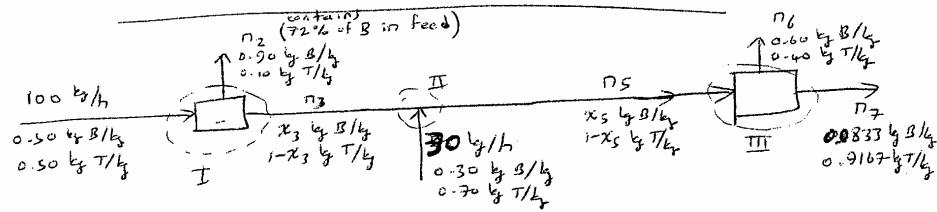 contains
(72% of B in feed)
n2
0.90 kg B/kg
0.10 kg T/kg
100 kg/h
0.50 kg B/kg
0.50 kg T/kg
I
n3
x3 kg B/kg
1-x3 kg T/kg
II
30 kg/h
0.30 kg B/kg
0.70 kg T/kg
n5
x5 kg B/kg
1-x5 kg T/kg
n6
0.60 kg B/kg
0.40 kg T/kg
III
n7
0.0833 kg B/kg
0.9167 kg T/kg